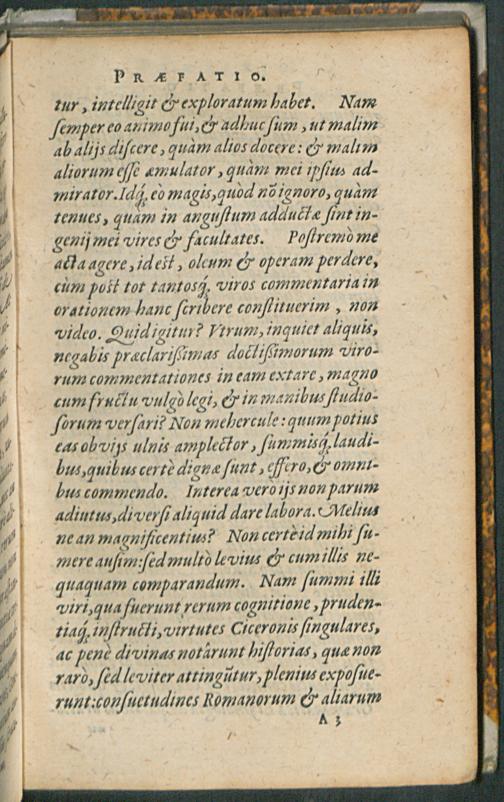 PRÆFATIO.
tur, intelligit & exploratum habet. Nam
semper eo animo fui, & adhuc sum, ut malim
ab alijs discere, quàm alios docere: & malim
aliorum esse æmulator, quàm mei ipsius ad-
mirator. Idq́. eò magis, quòd nõ ignoro, quàm
tenues, quàm in angustum adductæ sint in-
genij mei vires & facultates. Postremò me
acta agere, id est, oleum & operam perdere,
cùm post tot tantosq́. viros commentaria in
orationem hanc scribere constituerim, non
video. Quid igitur? Virum, inquiet aliquis,
negabis præclarißimas doctißimorum viro-
rum commentationes in eam extare, magno
cum fructu vulgò legi, & in manibus studio-
sorum versari? Non mehercule: quum potius
eas obvijs ulnis amplector, summisq́. laudi-
bus, quibus certè dignæ sunt, effero, & omni-
bus commendo. Interea verò ijs non parum
adiutus, diversi aliquid dare labora. Melius
ne an magnificentius? Non certè id mihi su-
mere ausim: sed multò levius & cum illis ne-
quaquam comparandum. Nam summi illi
viri, qua fuerunt rerum cognitione, pruden-
tiaq́. instructi, virtutes Ciceronis singulares,
ac penè divinas notârunt historias, quæ non
raro, sed leviter attingũtur, plenius exposue-
runt: consuetudines Romanorum & aliarum
A 3